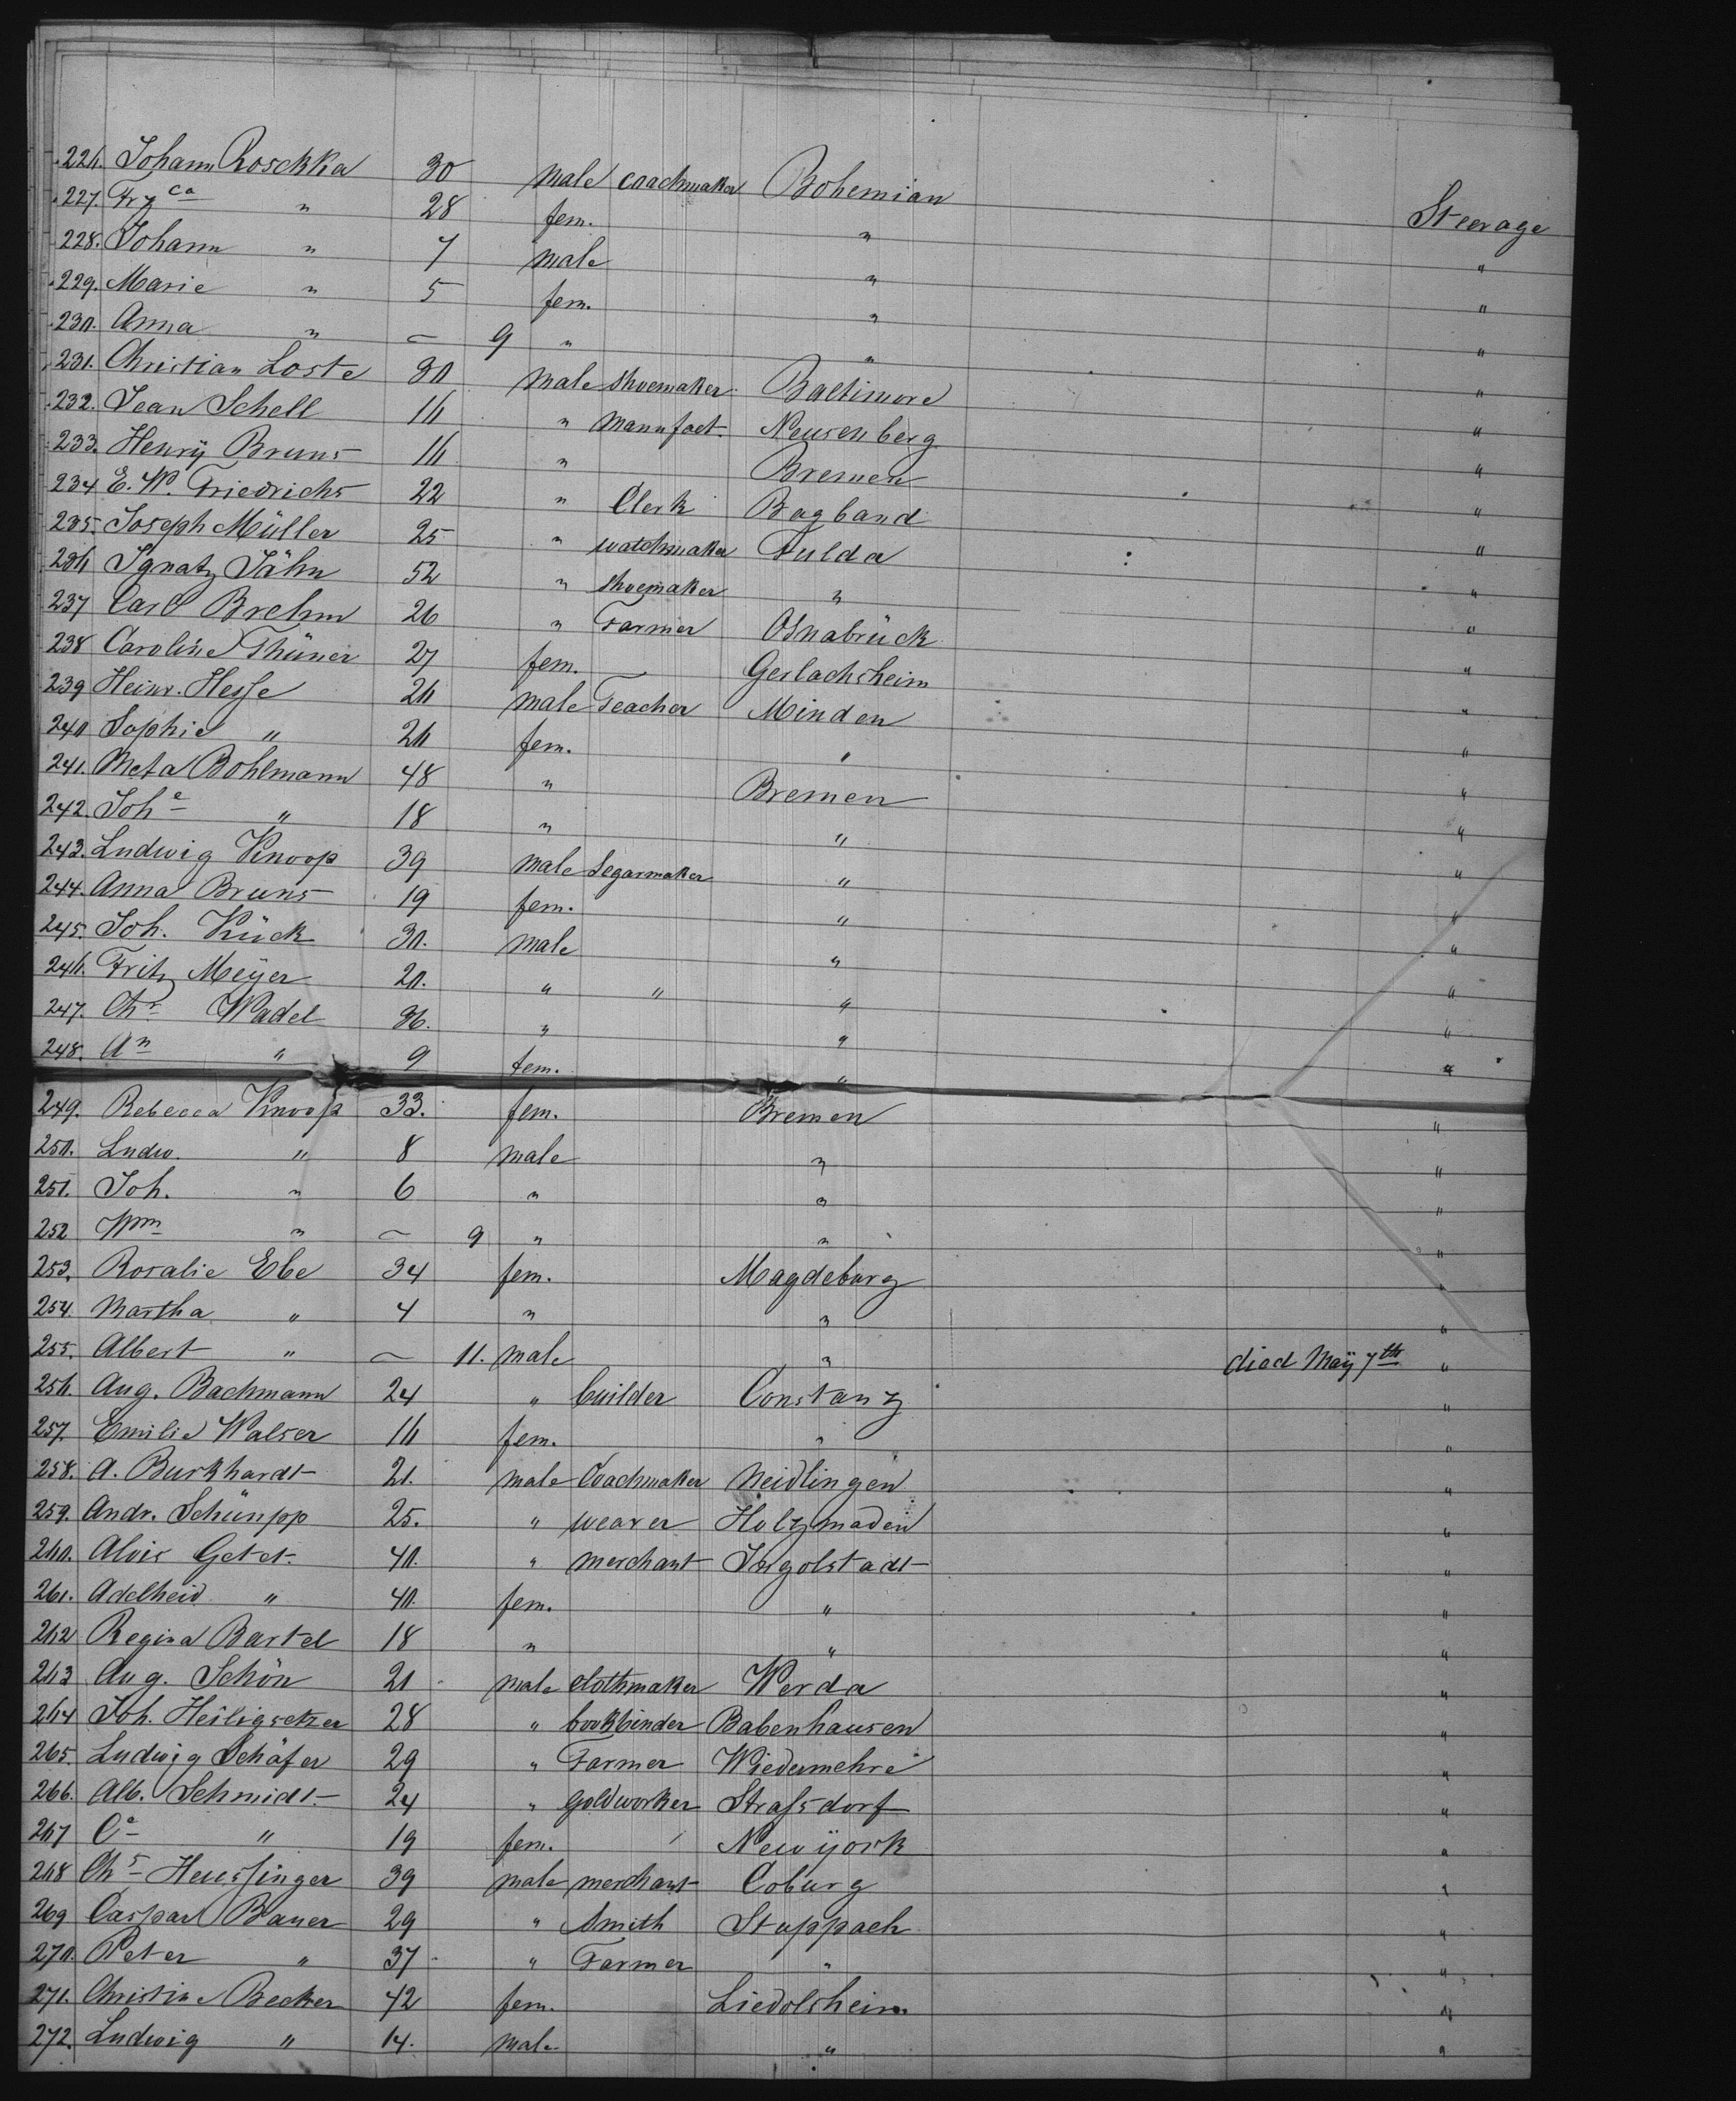 226. Johann Roschka 30 male coachmaker Bohemian Steerage
227. Frz ca " 28 fem. " "
228. Johann " 7 male " "
229. Marie " 5 fem. " "
230. Anna " — 9 " " "
231. Christian Loste 30 male shoemaker Baltimore "
232. Jean Schell 16 " Manufact. Neusenberg "
233. Henry Bruns 16 " Bremen "
234 E. W. Friedrichs 22 " Clerk Bagband "
235. Joseph Müller 25 " watchmaker Fulda "
236 Ignatz Jähn 52 " shoemaker " "
237 Carl Brehm 26 " Farmer Osnabrück "
238 Caroline Thüner 27 fem. Gerlachsheim "
239 Heinr. Hesse 26 male Teacher Minden "
240 Sophie " 26 fem. " "
241. Meta Bohlmann 48 " Bremen "
242. Joh e " 18 " " "
243. Ludwig Knoop 39 male Segarmaker " "
244. Anna Bruns 19 fem. " "
245. Joh. Kück 30. male " "
246. Fritz Meÿer 20. " " " "
247. Chr Wadel 36. " " "
248. An " 9 fem. " "
249. Rebecca Knoop 33. fem. Bremen "
250. Ludw. " 8 male " "
251. Joh. " 6 " " "
252 Wm " — 9 " " "
253. Rosalie Ebe 34 fem. Magdeburg "
254. Martha " 4 " " "
255. Albert " — 11. male " died Maÿ 7th "
256. Aug. Bachmann 24 " builder Constanz "
257. Emilie Walser 16 fem. " "
258. A. Burkhardt 21. male Coachmaker Neidlingen "
259. Andr. Schümpp 25. " weaver Holzmaden "
260. Alois Getet. 40. " merchant Ingolstadt "
261. Adelheid " 40. fem. " "
262 Regina Bartel 18 " " "
263 Aug. Schön 21 male clothmaker Werda "
264 Joh. Heiligsetzer 28 " bookbinder Babenhausen "
265. Ludwig Schäfer 29 " Farmer Wiedermehre "
266. Alb. Schmidt. 24 " goldworker Strassdorf "
267 Ce " 19 fem. New ÿork "
268 Chs Heussinger 39 male merchant Coburg "
269 Caspar Bauer 29 " Smith Stuppach "
270. Peter " 37 " Farmer " "
271. Christine Becker 42 fem. Liedolsheim "
272. Ludwig " 14. male " "